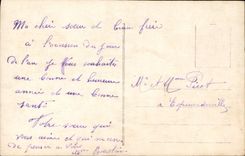 Ma chère sœur et beau frère
à l'occasion du jour
de l'an je vous souhaite
une bonne et heureuse
année et une bonne
santé
Votre sœur qui
vous aime et qui
de penser à
Mr et Mme Picot
à